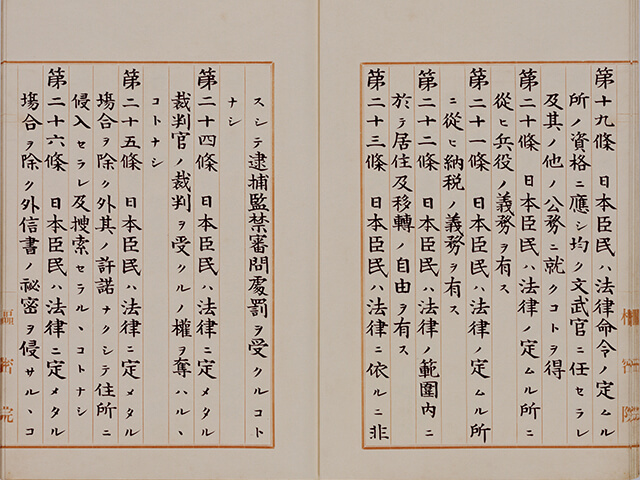 第十九條　日本臣民ハ法律命令ノ定ムル
所ノ資格ニ應シ均ク文武官ニ任セラレ
及其ノ他ノ公務ニ就クコトヲ得
第二十條　日本臣民ハ法律ノ定ムル所ニ
從ヒ兵役ノ義務ヲ有ス
第二十一條　日本臣民ハ法律ノ定ムル所
ニ從ヒ納税ノ義務ヲ有ス
第二十二條　日本臣民ハ法律ノ範圍内ニ
於テ居住及移轉ノ自由ヲ有ス
第二十三條　日本臣民ハ法律ニ依ルニ非
スシテ逮捕監禁審問處罰ヲ受クルコト
ナシ
第二十四條　日本臣民ハ法律ニ定メタル
裁判官ノ裁判ヲ受クルノ權ヲ奪ハルヽ
コトナシ
第二十五條　日本臣民ハ法律ニ定メタル
場合ヲ除ク外其ノ許諾ナクシテ住所ニ
侵入セラレ及搜索セラルヽコトナシ
第二十六條　日本臣民ハ法律ニ定メタル
場合ヲ除ク外信書ノ祕密ヲ侵サルヽコ